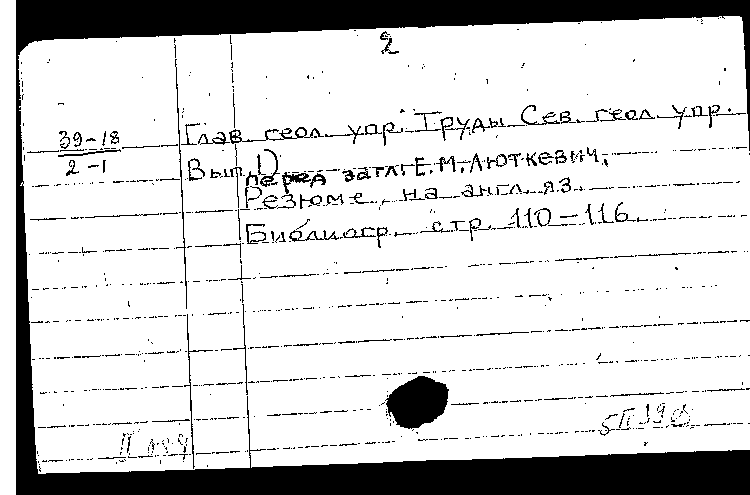 2
39-18
2-1
Глав. геол. упр. Труды Сев. геол. упр.
Вып. 1)
перед загл: Е.М. Люткевич.
Резюме на англ. яз.
Библиогр. стр. 110-116.